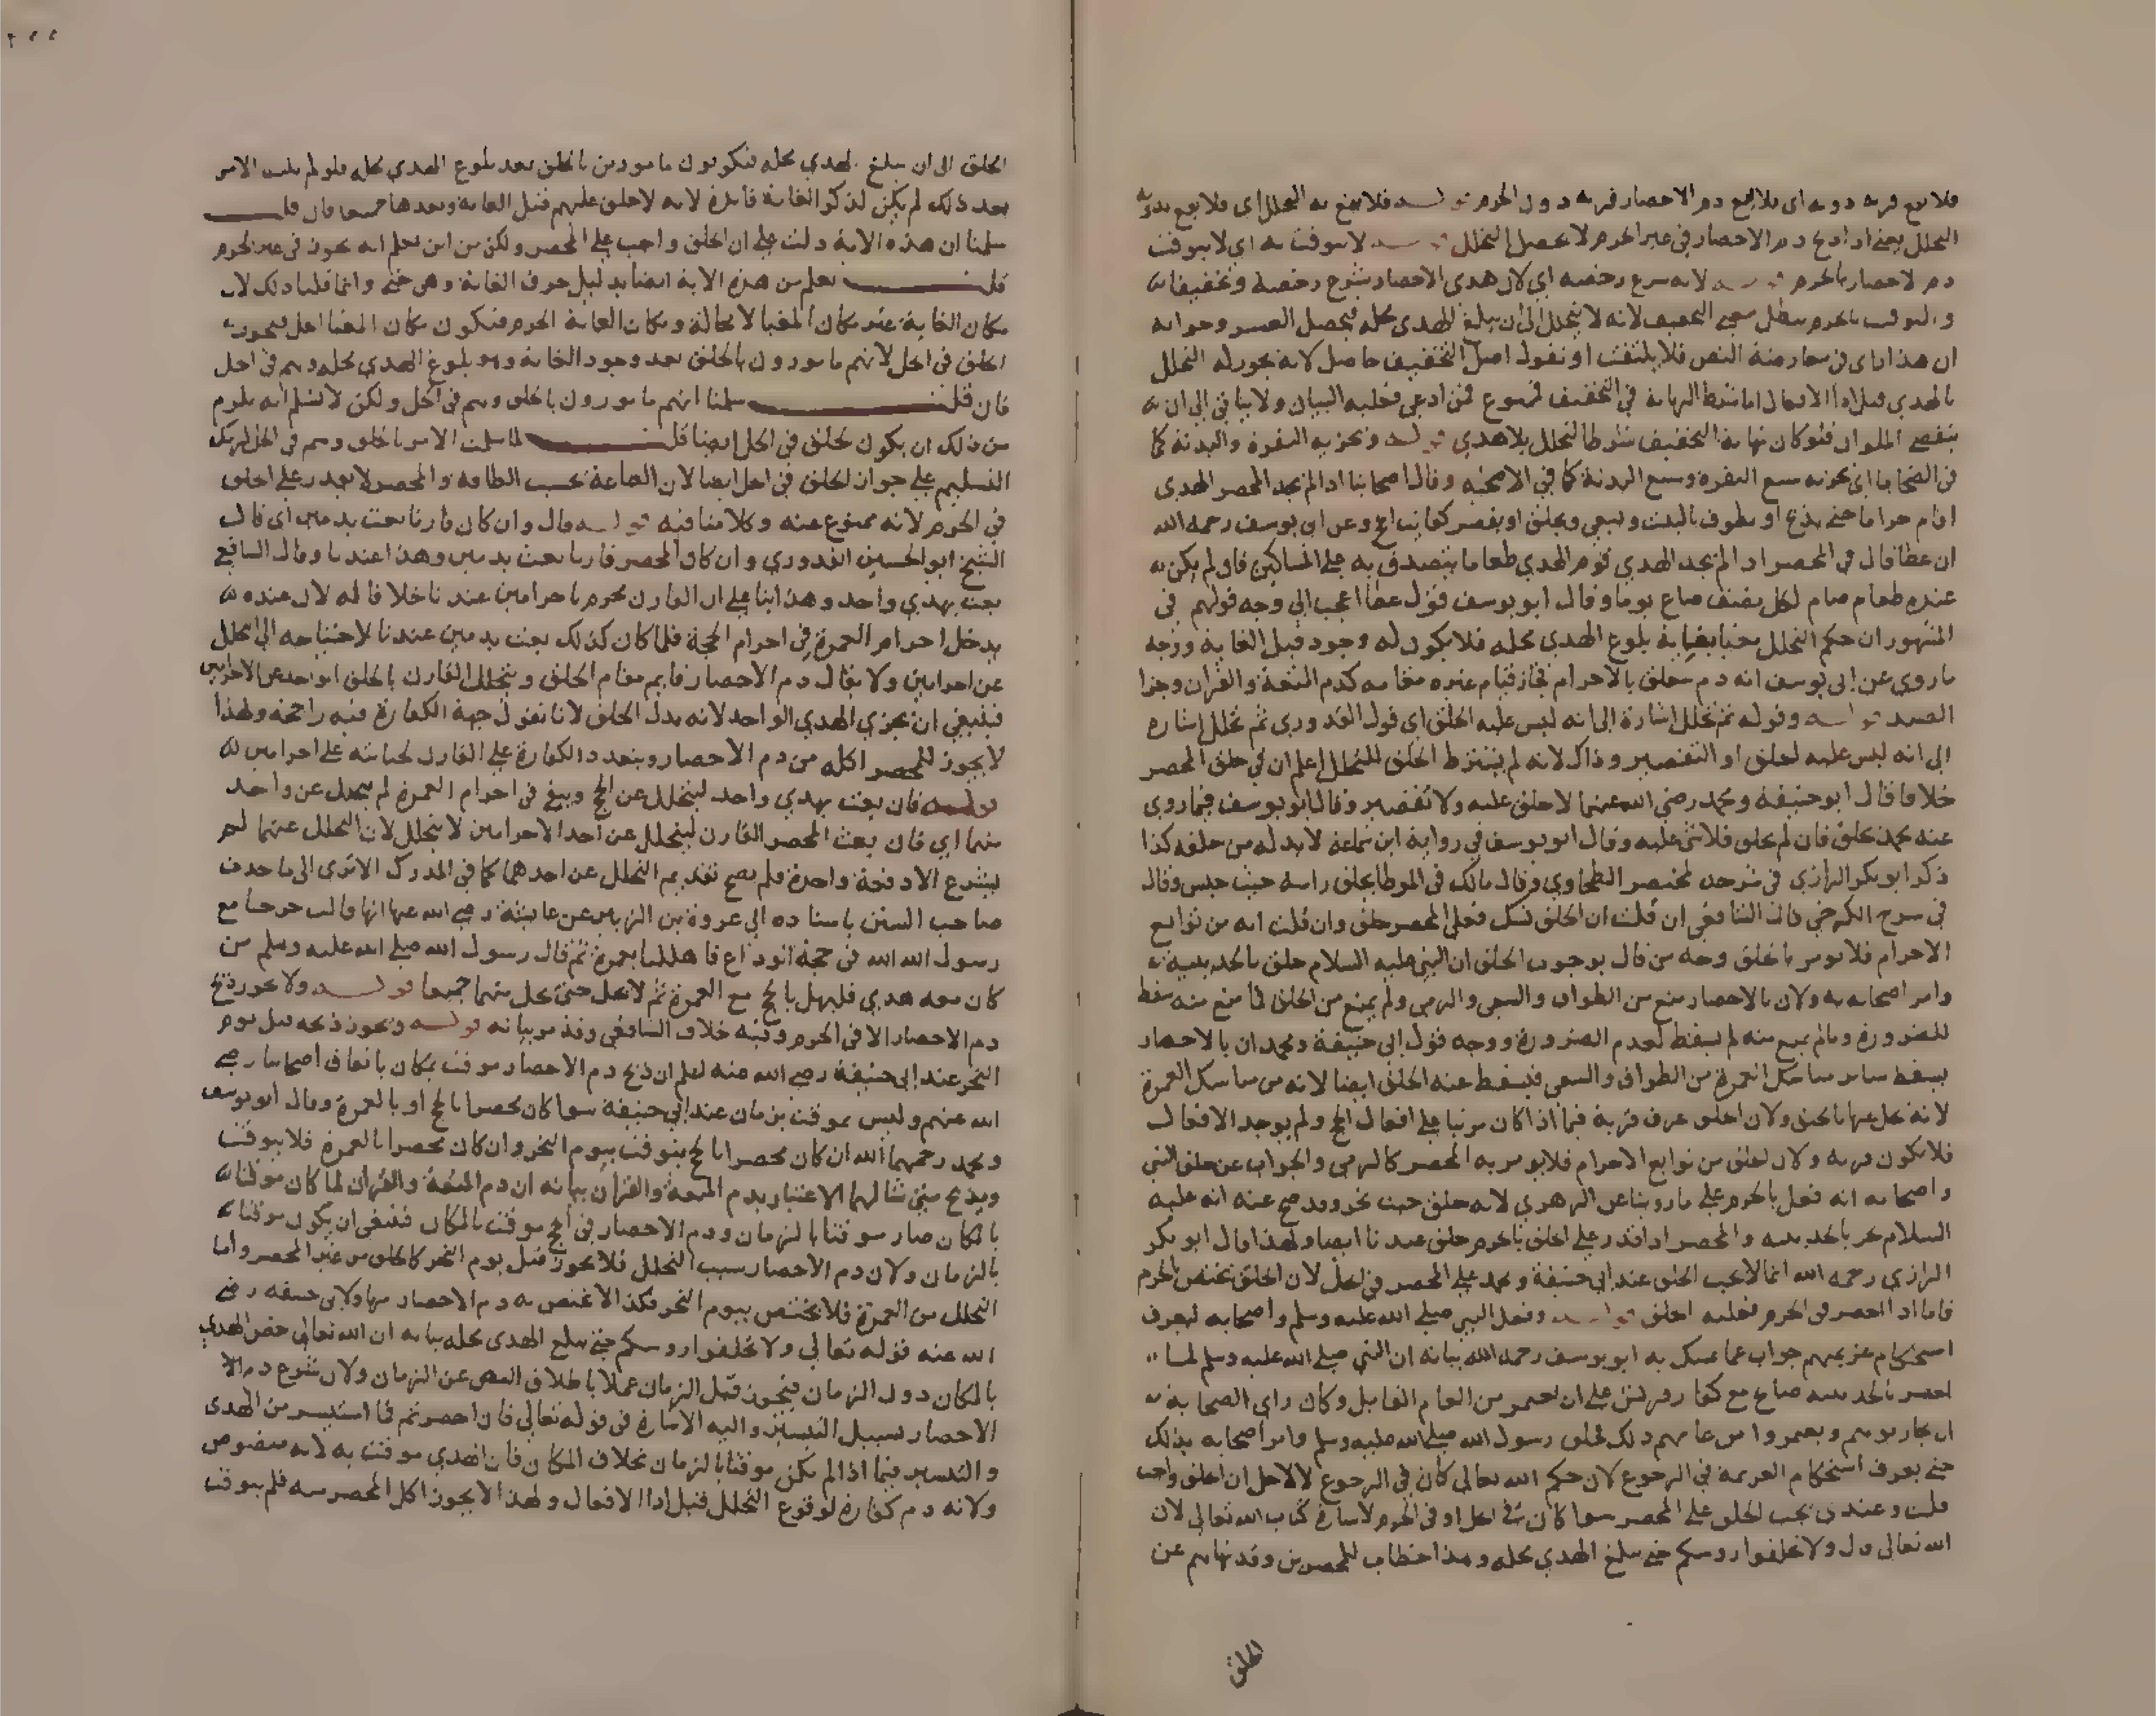 فلا يقع قربة دونه اى فلا يقع دم الاحصار قربة دون الحرم قوله فلا يقع به التحلل اى فلا يقع بدونه
التحلل يعنى اذا ذبح دم الاحصار فى غير الحرم لا يحصل التحلل قوله لا يتوقت به اي لا يتوقت
دم الاحصار بالحرم قوله لانه شرع رخصة اي لان هدى الاحصار شرع رخصة وتخفيفا
والتوقيت بالحرم يبطل معنى التخفيف لانه لا يتحلل الى ان يبلغ الهدى محله فيحصل العسر وجوابه
ان هذا راى فى معارضة النص فلا يلتفت او نقول اصل التخفيف حاصل لانه يجوز له التحلل
بالهدي قبل اداء الافعال اما شرط النهاية في التخفيف فممنوع فمن ادعى فعليه البيان ولا يتاتى الى ان
ينقضى الملوان فلو كان نهاية التخفيف شرطا لتحلل بلا هدي قوله وتجزيه البقرة والبدنة كما
فى الضحايا اى تجزيه سبع البقرة وسبع البدنة كما فى الاضحية وقال اصحابنا اذا لم يجد المحصر الهدى
اقام حراما حتى يذبح او يطوف بالبيت ويسعى ويحلق او يقصر كفايت الحج وعن ابى يوسف رحمه الله
ان عطا قال في المحصر اذا لم يجد الهدي قوم الهدي طعاما يتصدق به على المساكين فان لم يكن
عنده طعام صام لكل نصف صاع يوما وقال ابو يوسف قول عطا اعجب الي وجه قولهم فى
المشهور ان حكم التحلل مغيا بغاية بلوغ الهدى محله فلا يكون له وجود قبل الغاية ووجه
ما روى عن ابى يوسف انه دم متعلق بالاحرام فجاز قيام غيره مقامه كدم المتعة والقران وجزا
الصيد قوله وقوله ثم تحلل اشارة الى انه ليس عليه الحلق اى قول القدورى ثم تحلل اشارة
الى انه ليس عليه الحلق او التقصير وذاك لانه لم يشترط الحلق للتحلل اعلم ان في حلق المحصر
خلافا قال ابو حنيفة ومحمد رضي الله عنهما لا حلق عليه ولا تقصير وقال ابو يوسف فيما روى
عنه محمد يحلق فان لم يحلق فلا شى عليه وقال ابو يوسف في رواية ابن سماعة لا بد له من حلقه كذا
ذكر ابو بكر الرازي فى شرحه لمختصر الطحاوي وقال مالك فى الموطا يحلق راسه حيث حبس وقال
فى شرح الكرخى قال الشافعى ان قلت ان الحلق نسك فعلى المحصر حلق وان قلت انه من توابع
الاحرام فلا يومر بالحلق وجه من قال بوجوب الحلق ان النبي عليه السلام حلق بالحديبية
وامر اصحابه به ولان بالاحصار منع من الطواف والسعى والرمى ولم يمنع من الحلق فما منع منه سقط
للضرورة وما لم يمنع منه لم يسقط لعدم الضرورة ووجه قول ابى حنيفة ومحمد ان بالاحصار
يسقط ساير مناسك العمرة من الطواف والسعى فيسقط عنه الحلق ايضا لانه من مناسك العمرة
لانه يحل عنها بالحلق ولان الحلق عرف قربة فيما اذا كان مرتبا على افعال الحج ولم يوجد الافعال
فلا يكون قربة ولان الحلق من توابع الاحرام فلا يومر به المحصر كالرمى والجواب عن حلق النبي
واصحابه انه فعل بالحرم على ما روينا عن الزهري لانه حلق حيث نحر وقد صح عنه انه عليه
السلام نحر بالحديبية والمحصر اذا قدر على الحلق بالحرم حلق عندنا ايضا ولهذا قال ابو بكر
الرازي رحمه الله انما لا يجب الحلق عند ابى حنيفة ومحمد على المحصر في الحل لان الحلق يختص بالحرم
فاما اذا احصر فى الحرم فعليه الحلق قوله وفعل النبي صلى الله عليه وسلم واصحابه ليعرف
استحكام عزيمتهم جواب عما تمسك به ابو يوسف رحمه الله بيانه ان النبي صلى الله عليه وسلم لما
احصر بالحديبية صالح مع كفار قريش على ان يعتمر من العام القابل وكان راى الصحابة
ان يحاربوهم ويعتمروا من عامهم ذلك فحلق رسول الله صلى الله عليه وسلم وامر اصحابه بذلك
حتى يعرف استحكام العزيمة في الرجوع لان حكم الله تعالى كان في الرجوع لا لاجل ان الحلق واجب
قلت وعندى يجب الحلق على المحصر سوا كان فى الحل او فى الحرم لاشارة كتاب الله تعالى لان
الله تعالى قال ولا تحلقوا روسكم حتى يبلغ الهدي محله وهذا خطاب للمحصرين وقد نهاهم عن
الحلق
الحلق الى ان يبلغ الهدي محله فيكونون مامورين بالحلق بعد بلوغ الهدي محله فلو لم يثبت الامر
بعد ذلك لم يكن لذكر الغاية فائدة لانه لا حلق عليهم قبل الغاية وبعدها جميعا فان قلت
سلمنا ان هذه الاية دلت على ان الحلق واجب على المحصر ولكن من اين يعلم انه يجوز فى غير الحرم
قلت يعلم من هذه الاية ايضا بدليل حرف الغاية وهى حتى وانما قلنا ذلك لان
مكان الغاية غير مكان المغيا لا محالة ومكان الغاية الحرم فيكون مكان المغيا الحل فيجوز
الحلق فى الحل لانهم مامورون بالحلق بعد وجود الغاية وهو بلوغ الهدي محله وهم فى الحل
فان قلت سلمنا انهم مامورون بالحلق وهم فى الحل ولكن لا نسلم انه يلزم
من ذلك ان يكون الحلق فى الحل ايضا قلت لما سلمت الامر بالحلق وهم فى الحل لزمك
التسليم على جواز الحلق فى الحل ايضا لان الطاعة بحسب الطاقة والمحصر لا يقدر على الحلق
في الحرم لانه ممنوع عنه وكلامنا فيه قوله قال وان كان قارنا بعث بدمين اى قال
الشيخ ابو الحسين القدوري وان كان المحصر قارنا بعث بدمين وهذا عندنا وقال الشافعى
يبعث بهدي واحد وهذا بنا على ان القارن محرم باحرامين عندنا خلافا له لان عنده
يدخل احرام العمرة فى احرام الحجة فلما كان كذلك بعث بدمين عندنا لاحتياجه الى التحلل
عن احرامين ولا يقال دم الاحصار قايم مقام الحلق ويتحلل القارن بالحلق الواحد عن الاحرامين
فينبغى ان يجزي الهدي الواحد لانه بدل الحلق لانا نقول جهة الكفارة فيه راجحة ولهذا
لا يجوز للمحصر اكله من دم الاحصار ويتعدد الكفارة على القارن لجنايته على احرامين
قوله فان بعث بهدي واحد ليتحلل عن الحج ويبقى فى احرام العمرة لم يتحلل عن واحد
منهما اي فان بعث المحصر القارن ليتحلل عن احد الاحرامين لا يتحلل لان التحلل عنهما لم
يشرع الا دفعة واحدة فلم يصح تقديم التحلل عن احدهما كما فى المدرك الا ترى الى ما حدث
صاحب السنن باسناده الى عروة بن الزبير عن عايشة رضى الله عنها انها قالت خرجنا مع
رسول الله الله فى حجة الوداع فاهللنا بعمرة ثم قال رسول الله صلى الله عليه وسلم من
كان معه هدي فليهل بالحج مع العمرة ثم لا يحل حتى يحل منهما جميعا قوله ولا يجوز ذبح
دم الاحصار الا فى الحرم وفيه خلاف الشافعى وقد مر بيانه قوله ويجوز ذبحه قبل يوم
النحر عند ابى حنيفة رضى الله عنه اعلم ان ذبح دم الاحصار موقت بمكان باتفاق اصحابنا رضى
الله عنهم وليس بموقت بزمان عند ابى حنيفة سوا كان محصرا بالحج او بالعمرة وقال ابو يوسف
ومحمد رحمهما الله ان كان محصرا بالحج يتوقت بيوم النحر وان كان محصرا بالعمرة فلا يتوقت
ويذبح متى شا لهما الاعتبار بدم المتعة والقران بيانه ان دم المتعة والقران لما كان موقتا
بالمكان صار موقتا بالزمان ودم الاحصار فى الحج موقت بالمكان فينبغى ان يكون موقتا
بالزمان ولان دم الاحصار سبب التحلل فلا يجوز قبل يوم النحر كالحلق من غير المحصر واما
التحلل من العمرة فلا يختص بيوم النحر فكذا لا يختص به دم الاحصار منها ولابى حنيفة رضى
الله عنه قوله تعالى ولا تحلقوا روسكم حتى يبلغ الهدى محله بيانه ان الله تعالى خص الهدي
بالمكان دون الزمان فيجوز قبل الزمان عملا باطلاق النص عن الزمان ولان شرع دم الا
الاحصار بسبيل التيسير واليه الاشارة فى قوله تعالى فان احصرتم فما استيسر من الهدى
والتيسير فيما اذا لم يكن موقتا بالزمان بخلاف المكان فان الهدي موقت به لانه منصوص
ولانه دم كفارة لوقوع التحلل قبل اداء الافعال ولهذا لا يجوز اكل المحصر منه فلم يتوقت